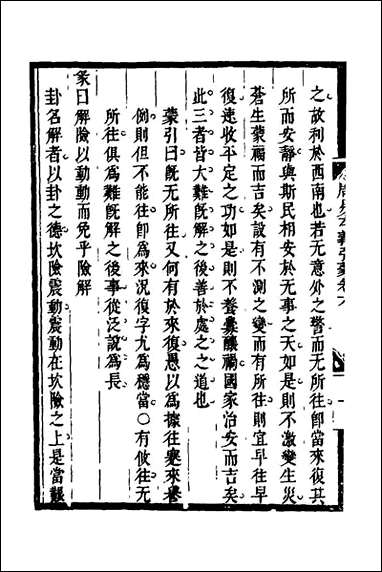 之故利於西南也若无意外之警而无所往卽當來復其
所而安靜與斯民相安於無事之天如是則不激變生災
蒼生蒙福而吉矣設有不測之變而有所往則宜早往早
復速收平定之功如是則不養釁釀禍國家治安而吉矣
此三者皆大難旣解之後善於處之之道也
蒙引曰旣无所往又何有於來復愚以爲據往蹇來譽
例則但不能往卽爲來況復字尤爲穩當○有攸往无
所往俱爲難旣解之後事從泛說爲長
彖曰解險以動動而免乎險解
卦名解者以卦之德坎險震動震動在坎險之上是當艱